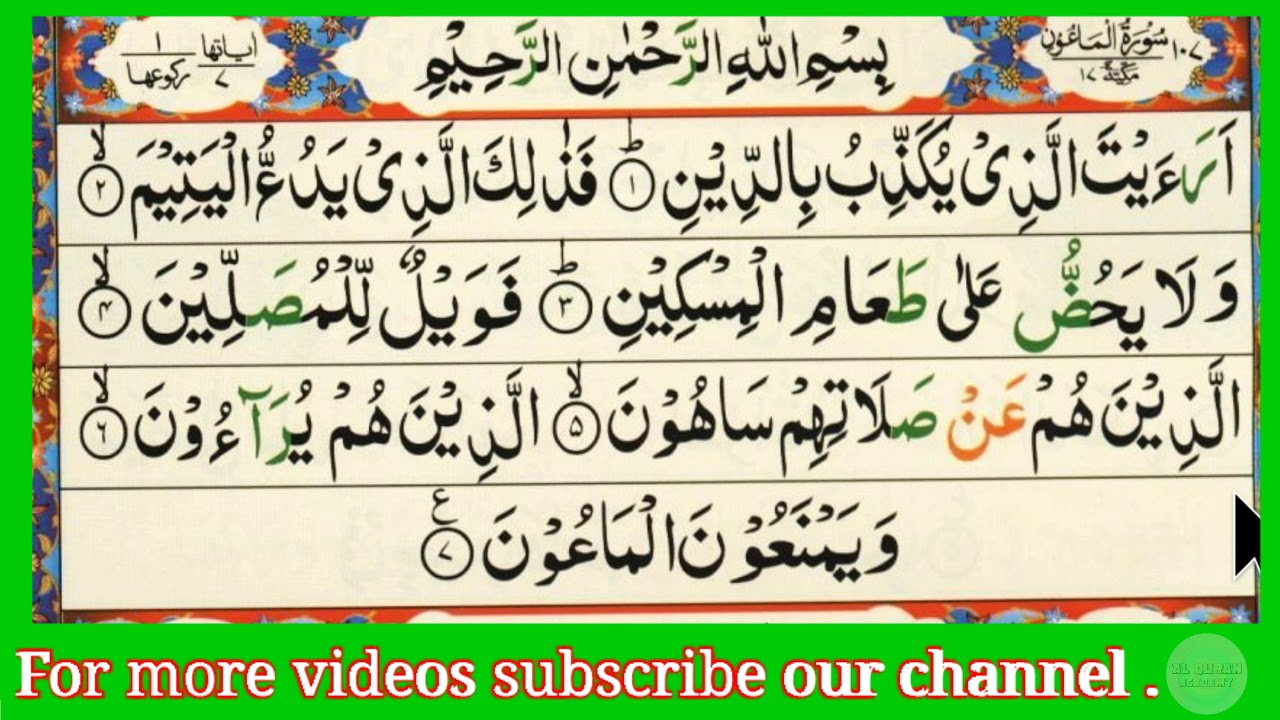 سُوْرَةُ الْمَاعُوْنِ ١٠٧
مَكِّيَّةٌ ١٧
بِسْمِ اللّٰهِ الرَّحْمٰنِ الرَّحِيْمِ
اٰیاتها ٧
رکوعها ١
اَرَءَيْتَ الَّذِىْ يُكَذِّبُ بِالدِّيْنِ ؕ﴿۱﴾ فَذٰلِكَ الَّذِىْ يَدُعُّ الْيَتِيْمَ ۙ﴿۲﴾
وَلَا يَحُضُّ عَلٰى طَعَامِ الْمِسْكِيْنِ ؕ﴿۳﴾ فَوَيْلٌ لِّلْمُصَلِّيْنَ ۙ﴿۴﴾
الَّذِيْنَ هُمْ عَنْ صَلَاتِهِمْ سَاهُوْنَ ۙ﴿۵﴾ الَّذِيْنَ هُمْ يُرَآءُوْنَ ۙ﴿۶﴾
وَيَمْنَعُوْنَ الْمَاعُوْنَ ﴿۷﴾ ع
For more videos subscribe our channel .
AL QURAN
ACADEMY